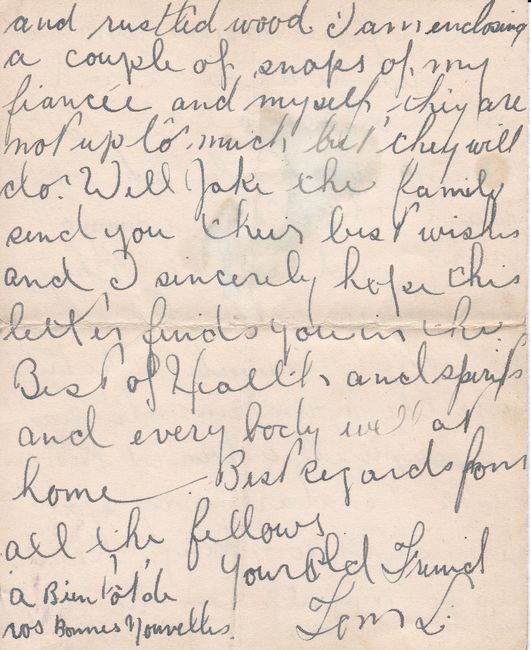 and rustled wood I am enclosing
a couple of snaps of my
fiancée and myself they are
not up to much but they will
do. Well Jake the family
send you their best wishes
and I sincerely hope this
letter finds you in the
Best of Health and spirits
and every body well at
home Best regards from
all the fellows
Your Old Friend
Tom L.
à Bientôt de
vos Bonnes Nouvelles.